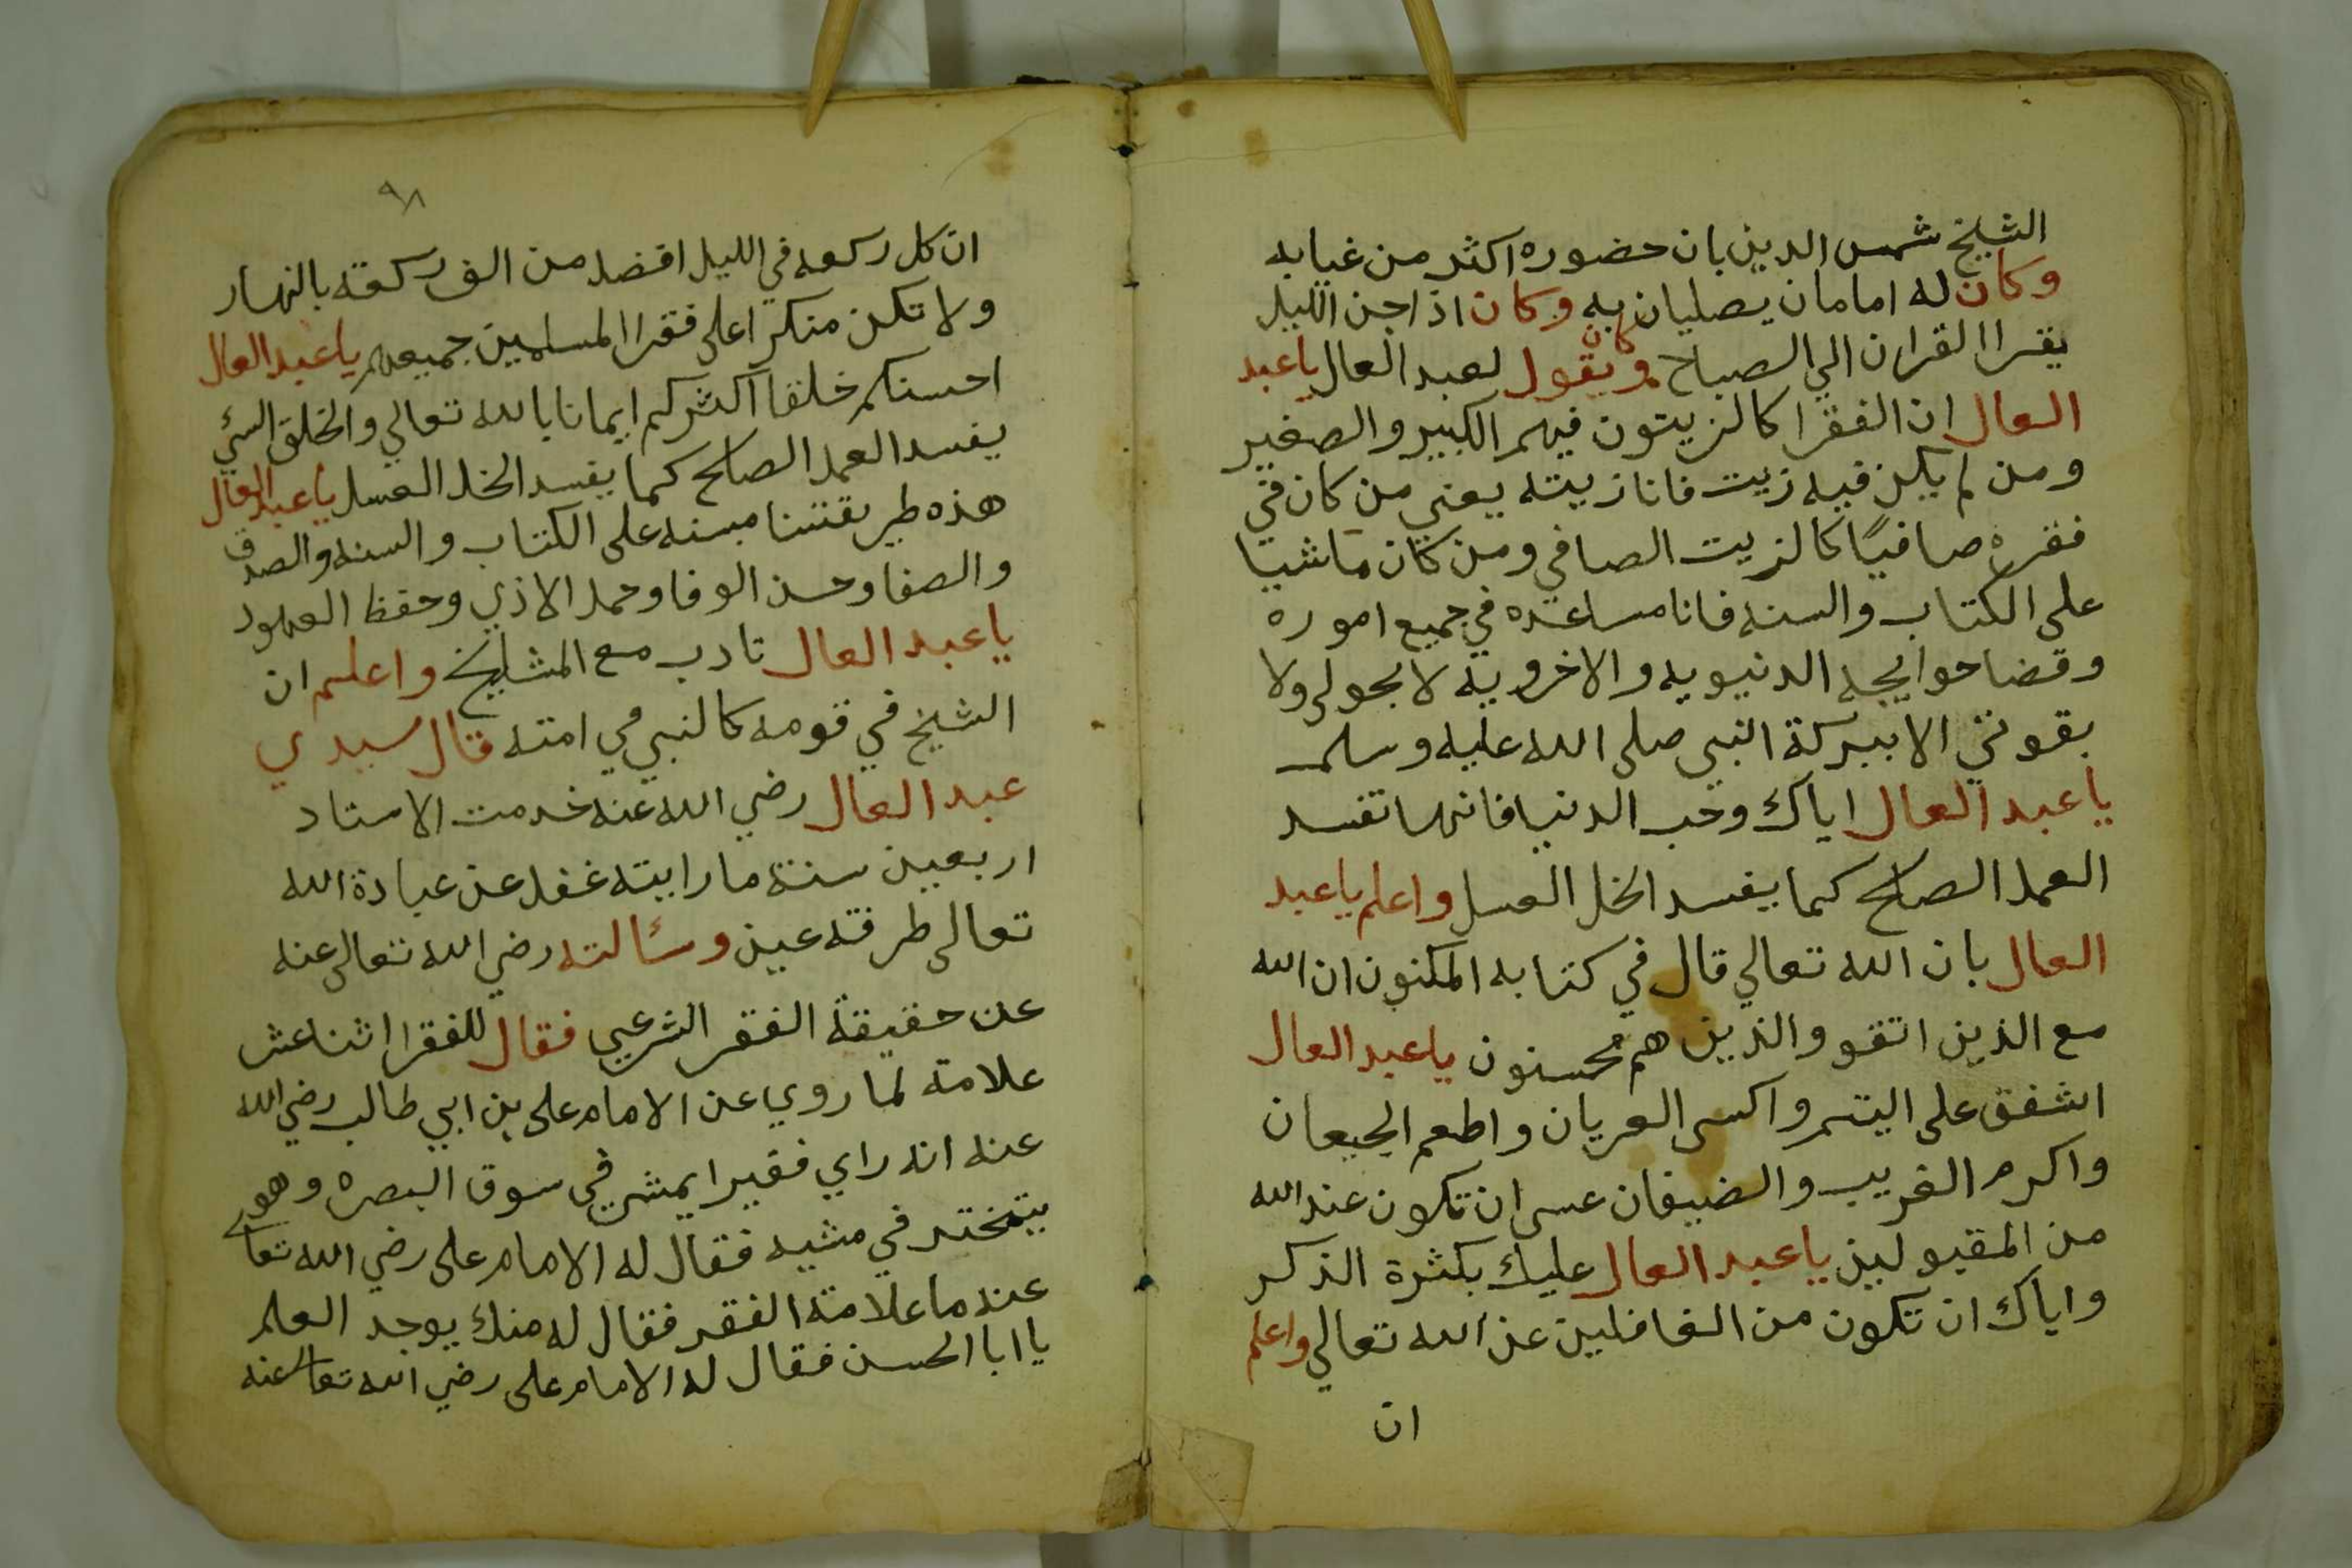 الشيخ شمس الدين بان حضوره اكثر من غيابه
وكان له امامان يصليان به وكان اذا جن الليل
يقرا القران الي الصباح وكان يقول لعبد العال يا عبد
العال ان الفقرا كالزيتون فيهم الكبير والصغير
ومن لم يكن فيه زيت فانا زيته يعني من كان في
فقره صافيًا كالزيت الصافي ومن كان ماشيا
على الكتاب والسنه فانا مساعده في جميع اموره
وقضا حوايجه الدنيويه والاخرويه لا بحولى ولا
بقوتي الا ببركة النبي صلى الله عليه وسلم
يا عبد العال اياك وحب الدنيا فانها تفسد
العمل الصالح كما يفسد الخل العسل واعلم يا عبد
العال بان الله تعالي قال في كتابه المكنون ان الله
مع الذين اتقو والذين هم محسنون يا عبد العال
اشفق على اليتم واكسى العريان واطعم الجيعان
واكرم الغريب والضيفان عسى ان تكون عند الله
من المقبولين يا عبد العال عليك بكثرة الذكر
واياك ان تكون من الغافلين عن الله تعالي واعلم
ان
٩٨
ان كل ركعه في الليل افضل من الف ركعة بالنهار
ولا تكن منكرا على فقرا المسلمين جميعهم يا عبد العال
احسنكم خلقا اكثركم ايمانا بالله تعالي والخلق السئ
يفسد العمل الصالح كما يفسد الخل العسل يا عبد العال
هذه طريقتنا مبنيه على الكتاب والسنه والصدق
والصفا وحسن الوفا وحمل الاذي وحفظ العهود
يا عبد العال تادب مع المشايخ واعلم ان
الشيخ في قومه كالنبي في امته قال سيدي
عبد العال رضي الله عنه خدمت الاستاد
اربعين سنة ما رايته غفل عن عبادة الله
تعالى طرفة عين وسئالته رضي الله تعالى عنه
عن حقيقة الفقر الشرعي فقال للفقرا اثنا عش
علامة لما روي عن الامام على بن ابي طالب رضي الله
عنه انه راي فقيرا يمشي في سوق البصره وهو
يتبختر في مشيه فقال له الامام على رضي الله تعالى
عنه ما علامة الفقر فقال له منك يوجد العلم
يا ابا الحسن فقال له الامام على رضي الله تعالى عنه